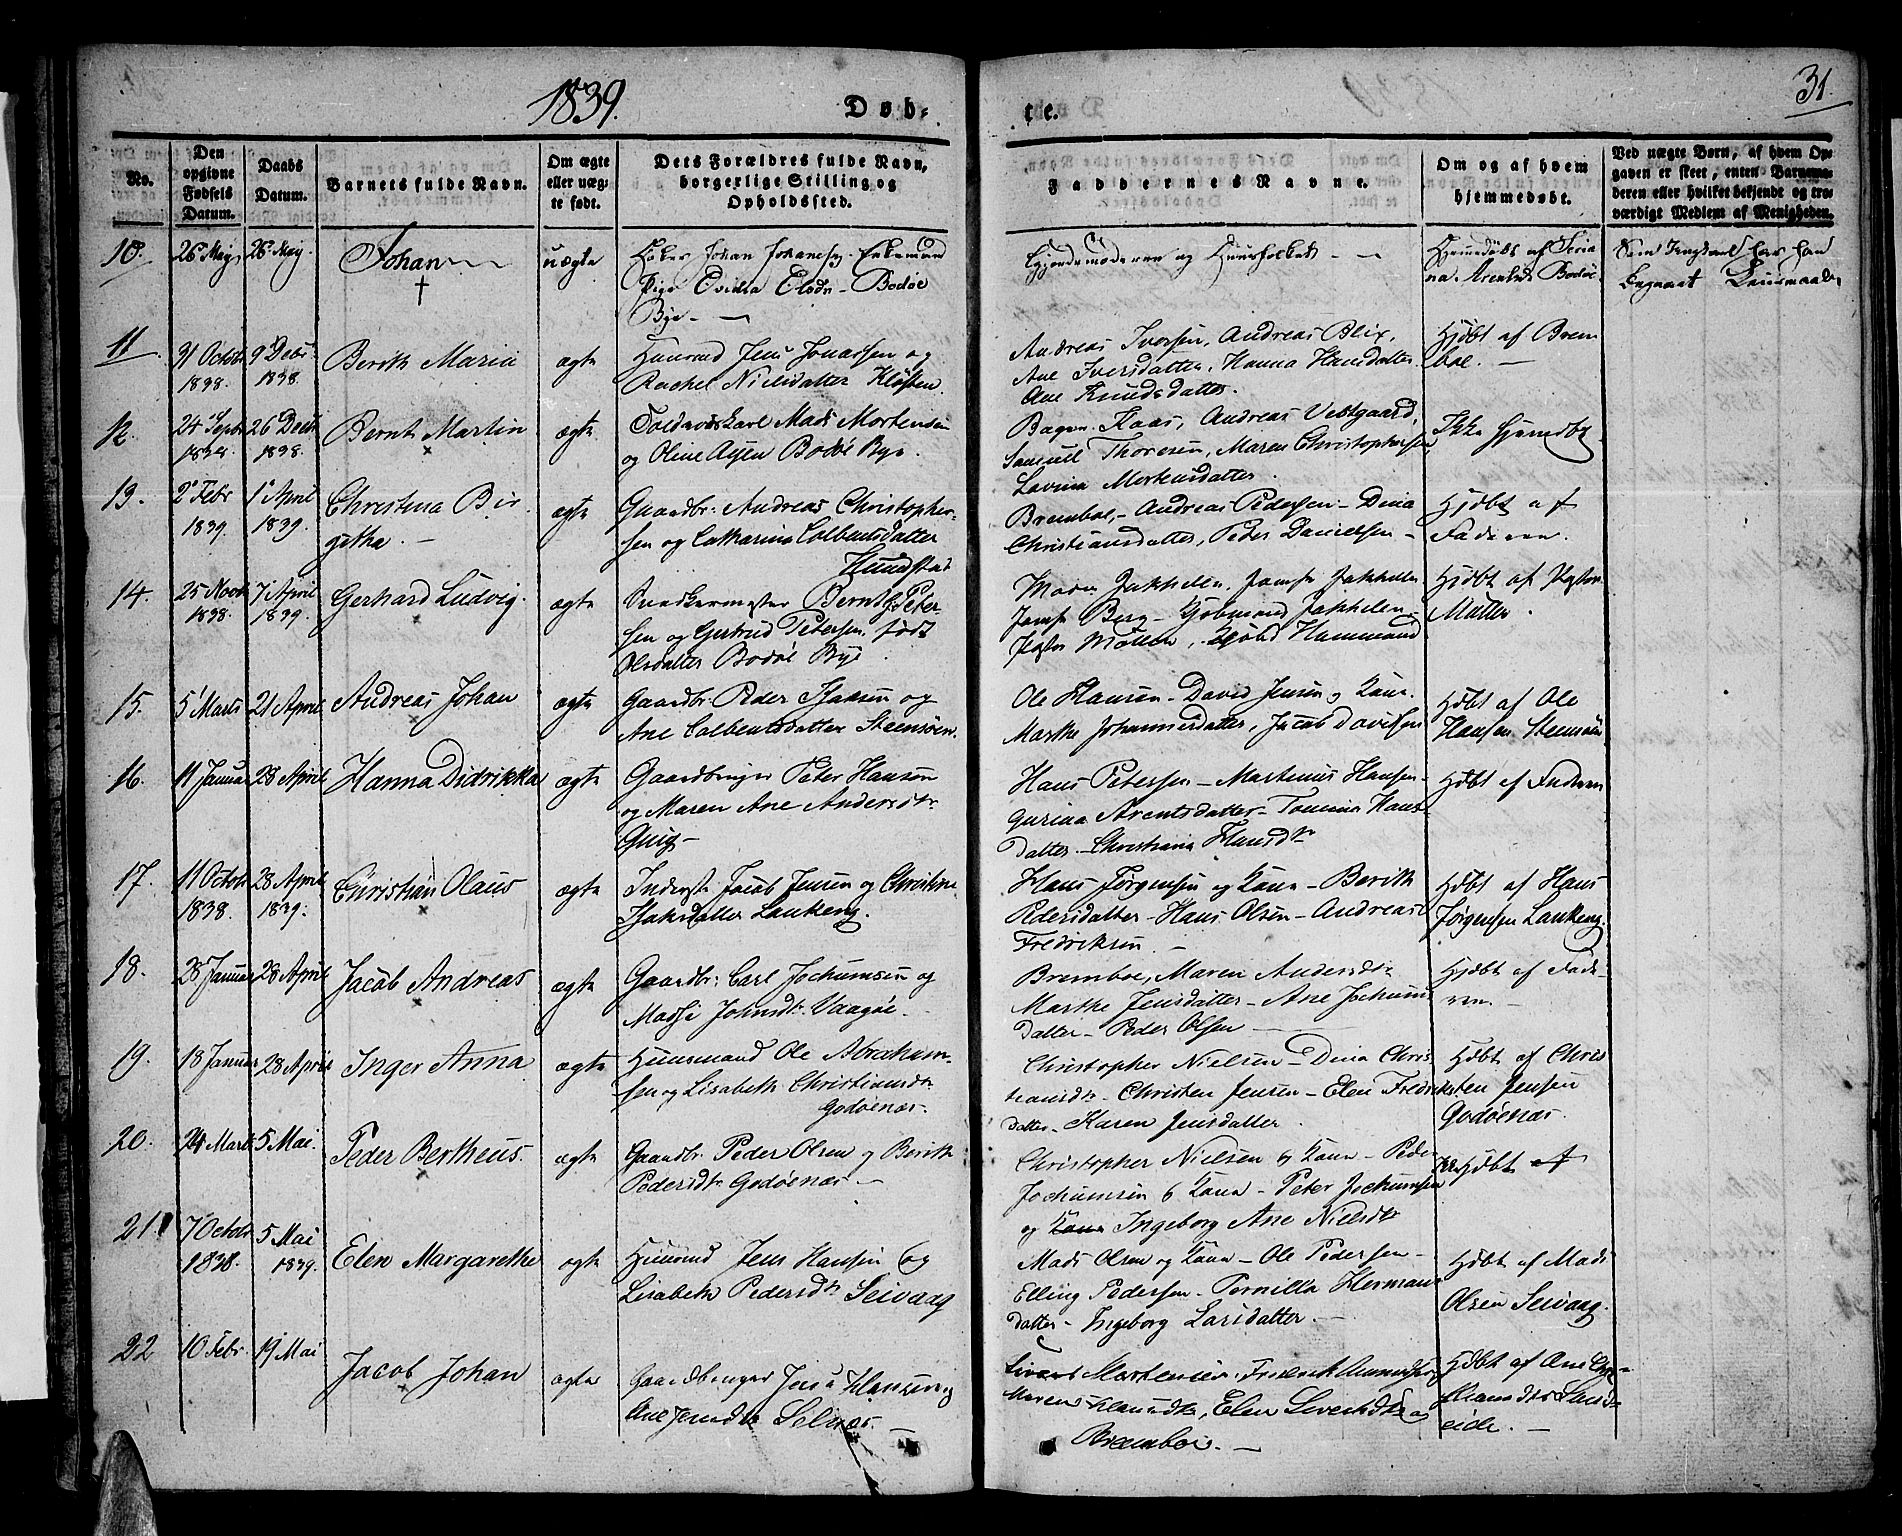 1839.
Døb-
te.
31.
No.
Den opgivne Fødsels Datum.
Daabs Datum.
Barnets fulde Navn.
Om ægte eller uægte født.
Dets Forældres fulde Navn, borgerlige Stilling og Opholdssted.
Faddernes Navne.
Om og af hvem hjemmedøbt.
Ved uægte Børn, af hvem Opgaven er skeet, enten Barnemoderen eller hvilket bekjendt og troværdigt Medlem af Menigheden.
10. 26 Maj 26 Maj Johan uægte
Johan Johansen Enkemand
Pige Bodøe
Bye
og Huusfolket
Hjemmedøbt af
Bodøe
11. 31 Octobr 1838. 9 Decbr. 1838. Berith Maria ægte
Huusmd Jens Jonassen og
Rachel Nielsdatter Kløften
Andreas Iversen, Andreas Blix,
Ane Iversdatter, Hanna Hansdatter
Ane Knudsdatter.
Hjdbt af Bremboe.
12. 24 Septbr 26 Decbr 1838. Bernt Martin ægte
Mads Mortensen
og Oline Bodøe Bye.
Andreas Vestgaard,
Samuel Thoresen, Maren Christophersen
Lovina Mortensdatter.
Ikke hjemdbt
13. 2 Febr 1839. 1 April 1839. Christina Birgitha. ægte
Gaardbr: Andreas Christophersen og Catharina Colbentsdatter
Hundstad
Bremboe, Andreas Pedersen - Dina
Christiansdatter, Peder Danielsen -
Hjdbt af
Faderen.
14. 25 Novbr 1838. 7 April 1839. Gerhard Ludvig. ægte
Snedkermester Bernt Petersen og Gertrud Petersen født
Olsdatter Bodøe Bye.
Madm Jakhelen, Jomf Jakhelen
Jomf Berg - Kjøbmand Jakhelen -
Møller, Kjøbmd Hammond
Hjdbt af
Møller.
15. 5 Marts 21 April Andreas Johan ægte
Gaardbr: Peder Isaksen og
Ane Colbentsdatter Steensøen.
Ole Hansen - David Jensen og Kone.
Marthe Johannesdatter, Jacob Davidsen
Hjdbt af Ole
Hansen Steensøen
16. 11 Januar 28 April Hanna Didrikka ægte
Gaardbruger Peter Hansen
og Maren Ane Andersdtr
Hans Petersen - Martinus Hansen -
Gurina Arentsdatter - Hansdatter - Christiana Hansdtr
Hjdbt af Faderen
17. 11 Octobr 1838. 28 April 1839. Christian Olaus ægte
Inderst Jacob Jensen og Christine
Isaksdatter Lankeng.
Hans Jørgensen og Kone - Berith
Pedersdatter - Hans Olsen - Andreas
Fredriksen. -
Hjdbt af Hans
Jørgensen Lankeng
18. 28 Januar 28 April Jacob Andreas ægte
Gaardbr: Carl Jochumsen og
Johnsdtr Vaagøe.
Bremboe, Maren Andersdtr
Marthe Jensdatter - Ane Jochumsdatter - Peder Olsen -
Hjdbt af Faderen. -
19. 18 Januar 28 April Inger Anna ægte
Huusmand Ole Abrahamsen og Lisabeth Christiansdtr
Godøenæs.
Christopher Nielsen - Dina Christiansdtr - Christen Jensen - Elen Fredriksdatter - Karen Jensdatter.
Hjdbt af Christen Jensen
Godøenæs
20. 24 Marts 5 Mai. Peder Bertheus. ægte
Gaardbr Peder Olsen og Berith
Pedersdtr Godøenæs -
Christopher Nielsen og Kone - Peder
Jochumsen og Kone - Peter Jochumsen
og Kone Ingeborg Ane Nielsdtr
Hjdbt af
21. 7 Octobr 1838. 5 Mai 1839. Elen Margarethe ægte
Huusmd Jens Hansen og
Lisabeth Pedersdtr Seivaag
Mads Olsen og Kone - Ole Pedersen -
Elling Pedersen - Pernilla Hermansdatter - Ingeborg Larsdatter. -
Hjdbt af Mads
Olsen Seivaag.
22 10 Febr. 19 Mai Jacob Johan ægte
Gaardbruger Jens Hansen og
Ane Jensdtr Selnæs. -
Mortensen, Fredrik
Maren Hansdtr, Elen Sivertsdtr og
Bremboe. -
Hjdbt af Ane